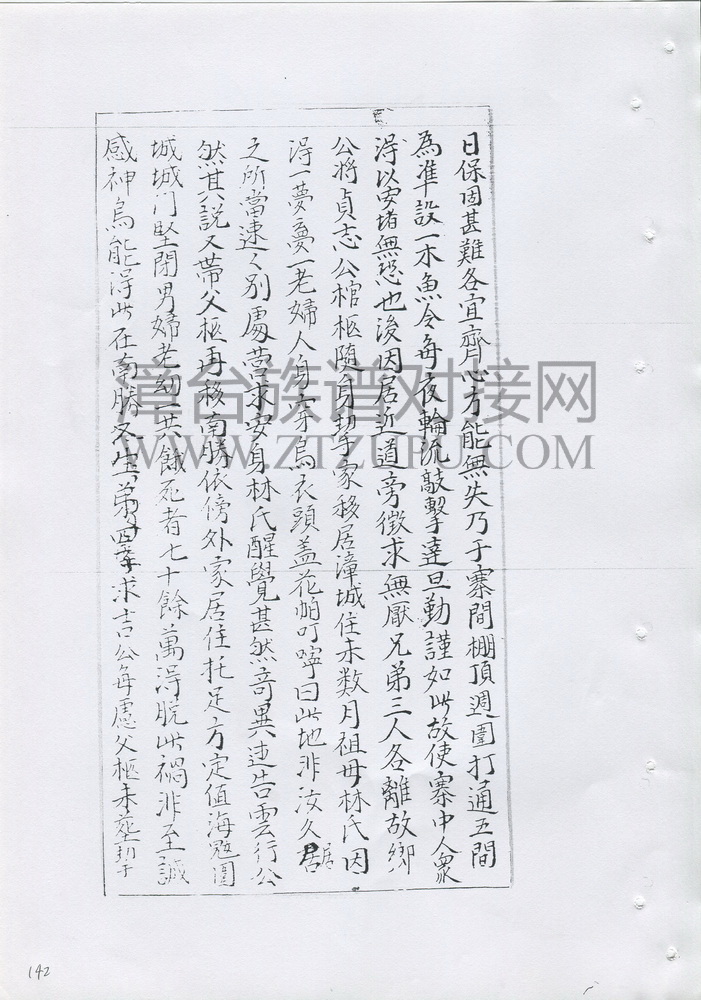 日保固甚難各宜齊心方能無失乃于寨間棚頂週圍打通五間
為準設一木魚令每夜輪流敲擊達旦勤謹如此故使寨中人眾
得以安堵無恐也後因居近道旁徵求無厭兄弟三人各離故鄉
公將貞志公棺柩隨身挈家移居漳城住未数月祖母林氏因
得一夢夢一老婦人身穿烏衣頭蓋花帕叮嚀曰此地非汝久居
之所當速々別處營求安身林氏醒覺甚然奇異述告雲行公
然其說又帶父柩再移南勝依傍外家居住托足方定值海題圍
城城門堅閉男婦老幼共餓死者七十餘萬得脫此禍非至誠
感神烏能得此在南勝又生第四求吉公每慮父柩未塟切于
漳台族谱对接网
WWW.ZTZUPU.COM
142